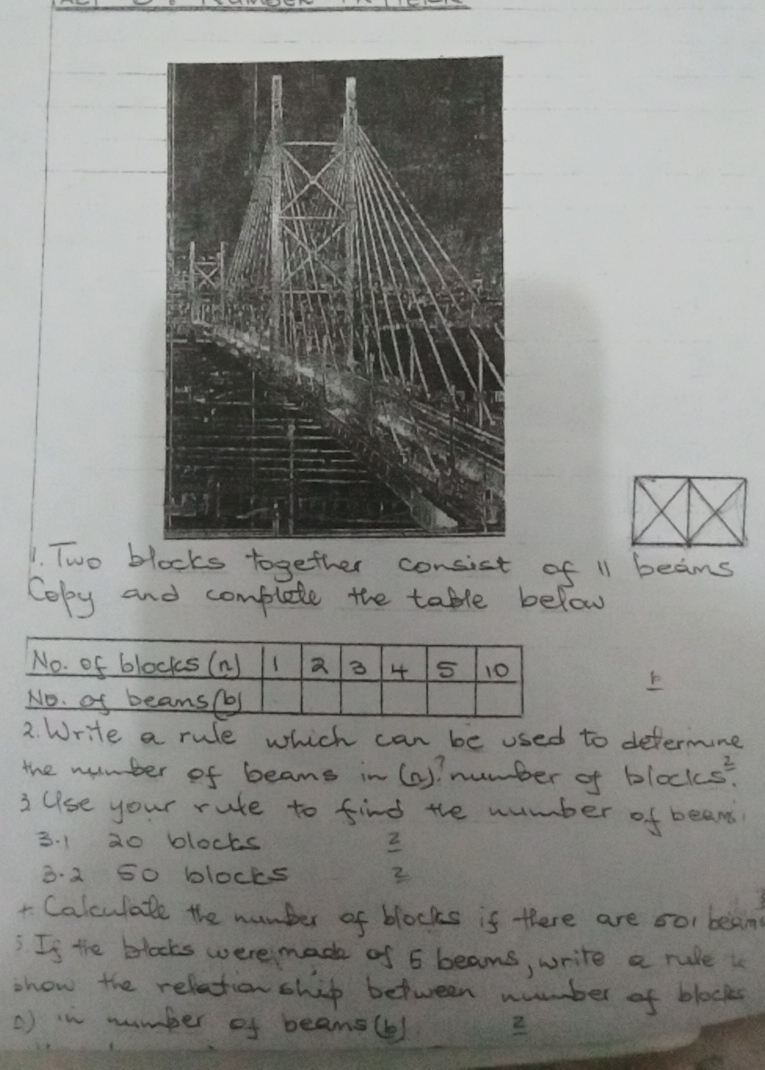 1. Two blocks together consist of 11 beams
Copy and complete the table below
No. of blocks (n) 1 2 3 4 5 10
No. of beams (b)
2. Write a rule which can be used to determine
the number of beams in (n)? number of blocks. 2
3 Use your rule to find the number of beams:
3.1 20 blocks 2
3.2 50 blocks 2
Calculate the number of blocks if there are 501 beams 3
5. If the blocks were made of 5 beams, write a rule to
show the relationship between number of blocks
n) in number of beams (b) 2